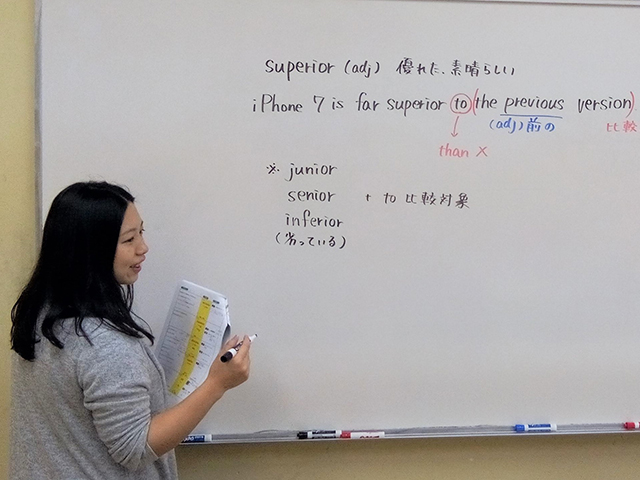 superior (adj) 優れた、素晴らしい
iPhone 7 is far superior to (the previous version)
(adj) 前の 比較
than X
※ junior
senior + to 比較対象
inferior
(劣っている)